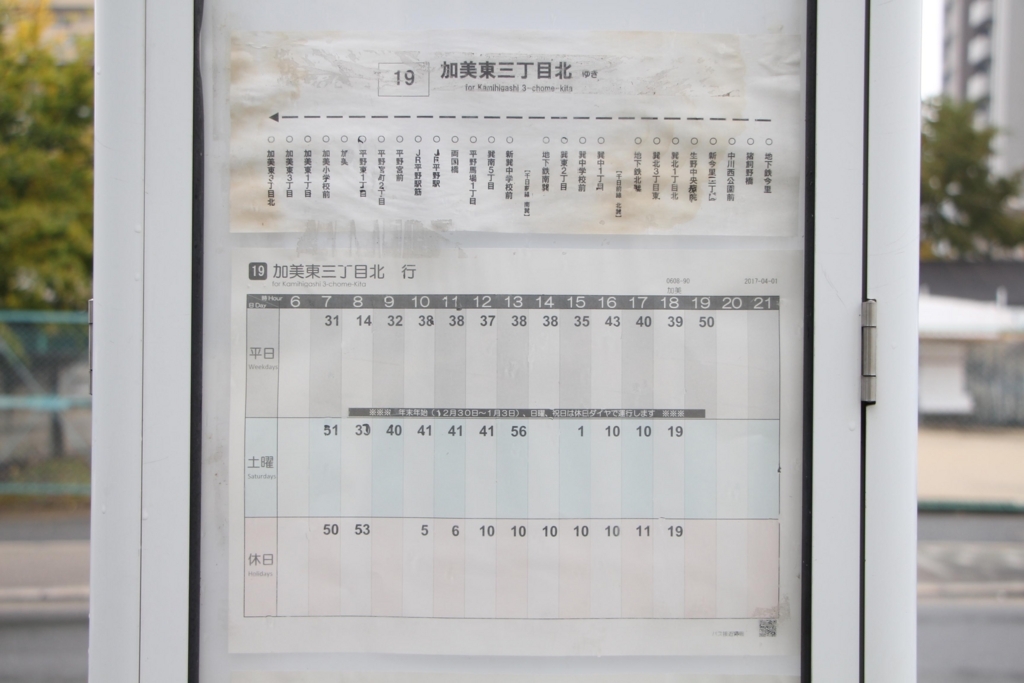 19 加美東三丁目北 ゆき
for Kamihigashi 3-chome-kita
加美東3丁目北
加美東3丁目
加美東1丁目
加美小学校前
加美
平野東1丁目
平野宮町2丁目
平野宮前
JR平野駅筋
JR平野駅
両国橋
平野馬場1丁目
巽南5丁目
新巽中学校前
地下鉄南巽
巽東2丁目
巽中学校前
巽中1丁目
地下鉄北巽
巽北3丁目東
巽北1丁目
生野中央病院前
新今里三丁目
中川西公園前
猪飼野橋
地下鉄今里
19 加美東三丁目北 行
for Kamihigashi 3-chome-Kita
0608-90 2017-04-01
加美
時Hour 6 7 8 9 10 11 12 13 14 15 16 17 18 19 20 21
日Day
平日 31 14 32 38 38 37 38 38 35 43 40 39 50
Weekdays
※※※ 年末年始(12月30日～1月3日)、日曜、祝日は休日ダイヤで運行します ※※※
土曜 51 33 40 41 41 41 56 1 10 10 19
Saturdays
休日 50 53 5 6 10 10 10 10 10 11 19
Holidays